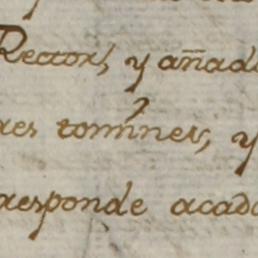 Rector, y añad
res tomines, y
responde acad